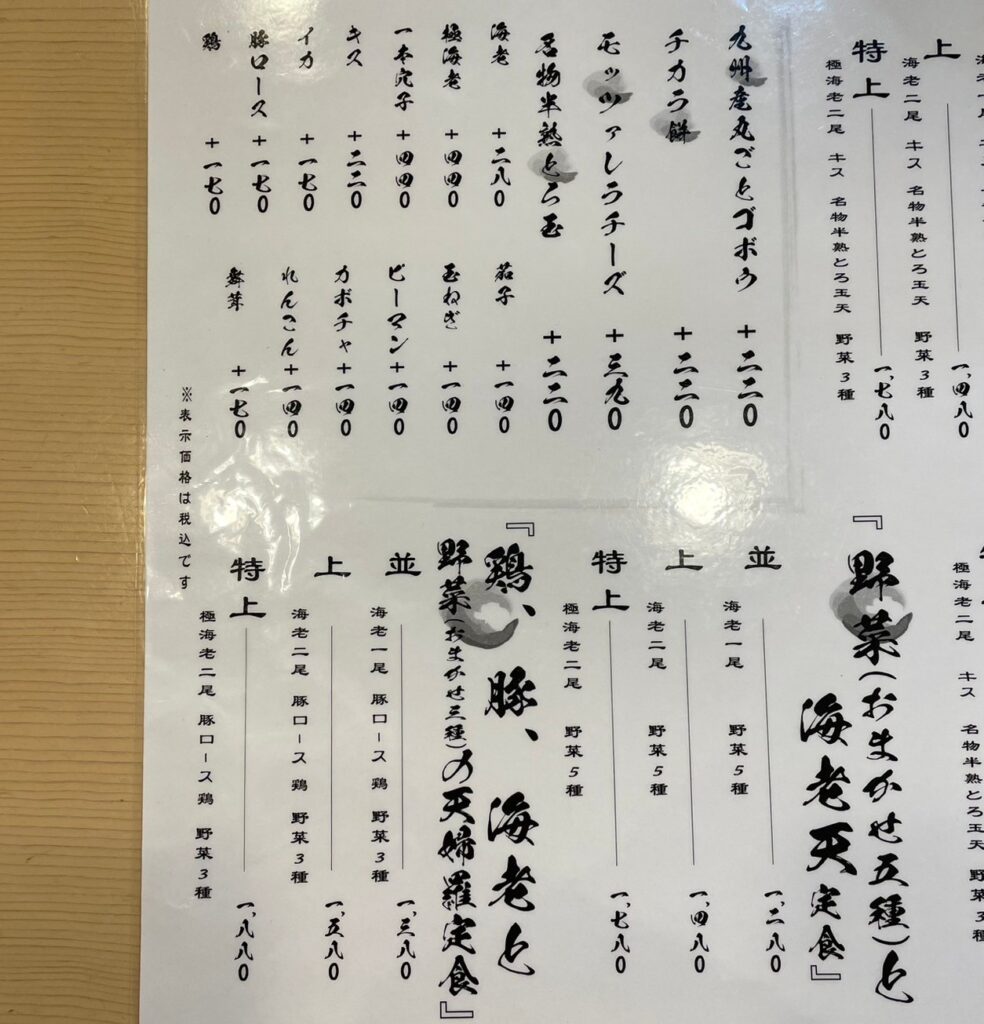 上 一、四八0
海老二尾 キス 名物半熟とろ玉天 野菜3種
特上 一、七八0
極海老二尾 キス 名物半熟とろ玉天 野菜3種
九州産丸ごとゴボウ +二二0
チカラ餅 +二二0
モッツァレラチーズ +三九0
名物半熟とろ玉 +二二0
海老 +二八0
極海老 +四四0
一本穴子 +四四0
キス +二二0
イカ +一七0
豚ロース +一七0
鶏 +一七0
茄子 +一四0
玉ねぎ +一四0
ピーマン +一四0
カボチャ +一四0
れんこん +一四0
舞茸 +一七0
※表示価格は税込です
極海老二尾 キス 名物半熟とろ玉天 野菜3種
『野菜(おまかせ五種)と
海老天定食』
並 一、二八0
海老一尾 野菜5種
上 一、四八0
海老二尾 野菜5種
特上 一、七八0
極海老二尾 野菜5種
『鶏、豚、海老と
野菜(おまかせ三種)の天婦羅定食』
並 一、三八0
海老一尾 豚ロース 鶏 野菜3種
上 一、五八0
海老二尾 豚ロース 鶏 野菜3種
特上 一、八八0
極海老二尾 豚ロース 鶏 野菜3種